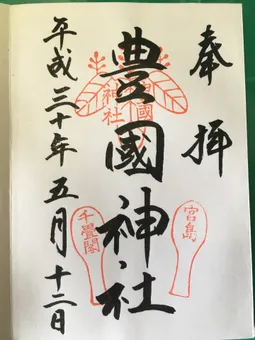 奉拝
豊國神社
平成三十年五月十二日
神社
宮島
千畳閣